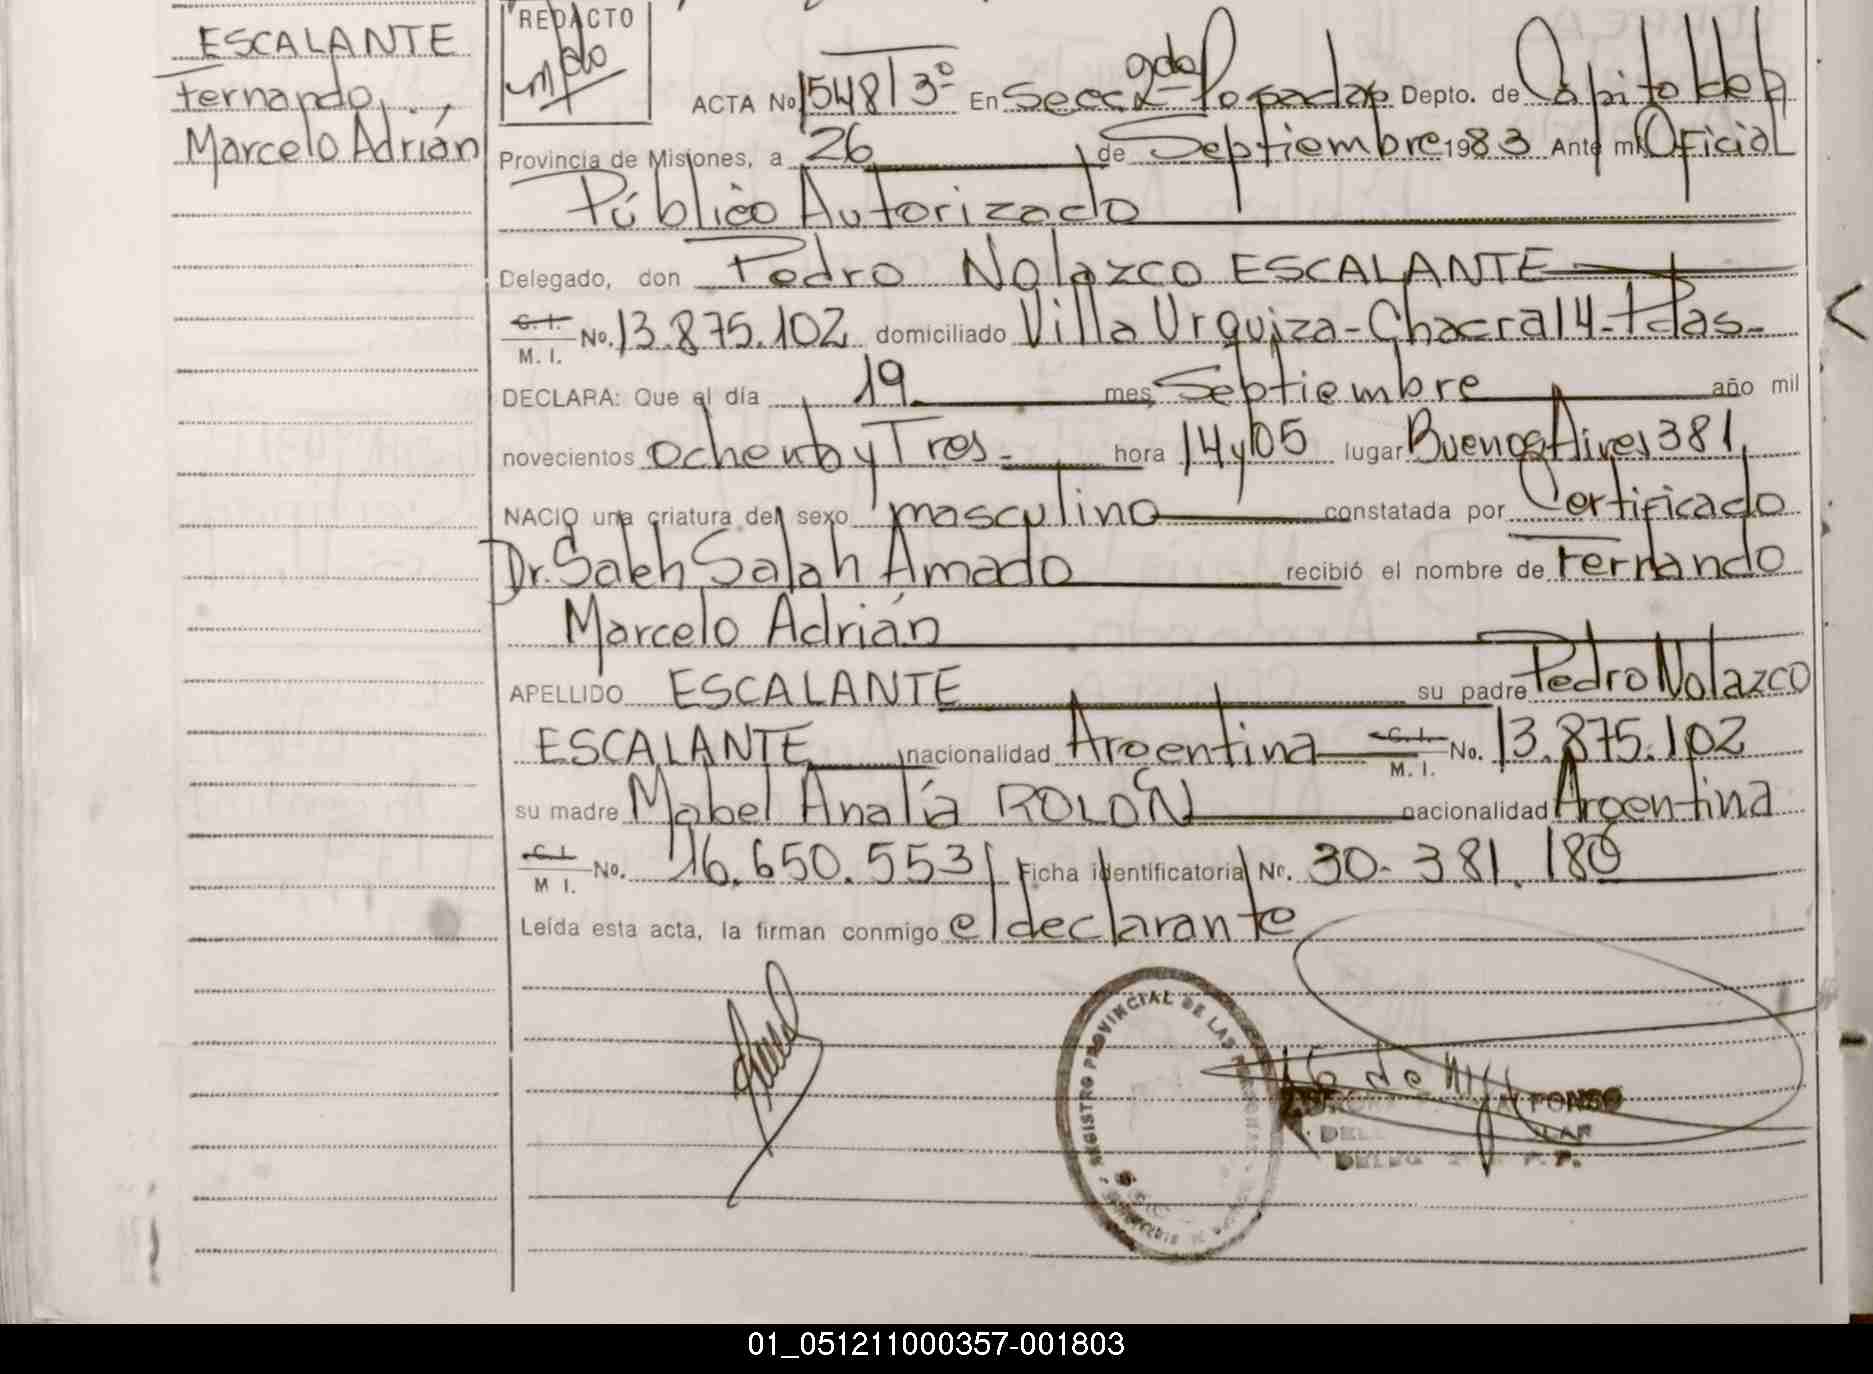 ESCALANTE
Fernando,
Marcelo Adrián
REDACTO
ACTA No 1548/3º En Secc 2da Posadas Depto. de Capital
Provincia de Misiones, a 26 de Septiembre 1983 Ante mi Oficial
Público Autorizado
Delegado, don Pedro Nolazco ESCALANTE
C. I. M. I. No. 13.875.102 domiciliado Villa Urquiza - Chacra 14 - Pdas.-
DECLARA: Que el día 19 mes Septiembre año mil
novecientos ochenta y Tres.- hora 14 y 05 lugar Buenos Aires 381,
NACIO una criatura del sexo masculino constatada por Certificado
Dr. Saleh Salah Amado recibió el nombre de Fernando
Marcelo Adrián
APELLIDO ESCALANTE su padre Pedro Nolazco
ESCALANTE nacionalidad Argentina C. I. M. I. No. 13.875.102
su madre Mabel Analía ROLÓN nacionalidad Argentina
C. I. M I. No. 16.650.553 Ficha identificatoria Nº. 30- 381.180
Leída esta acta, la firman conmigo el declarante
REGISTRO PROVINCIAL DE LAS PERSONAS
01_051211000357-001803